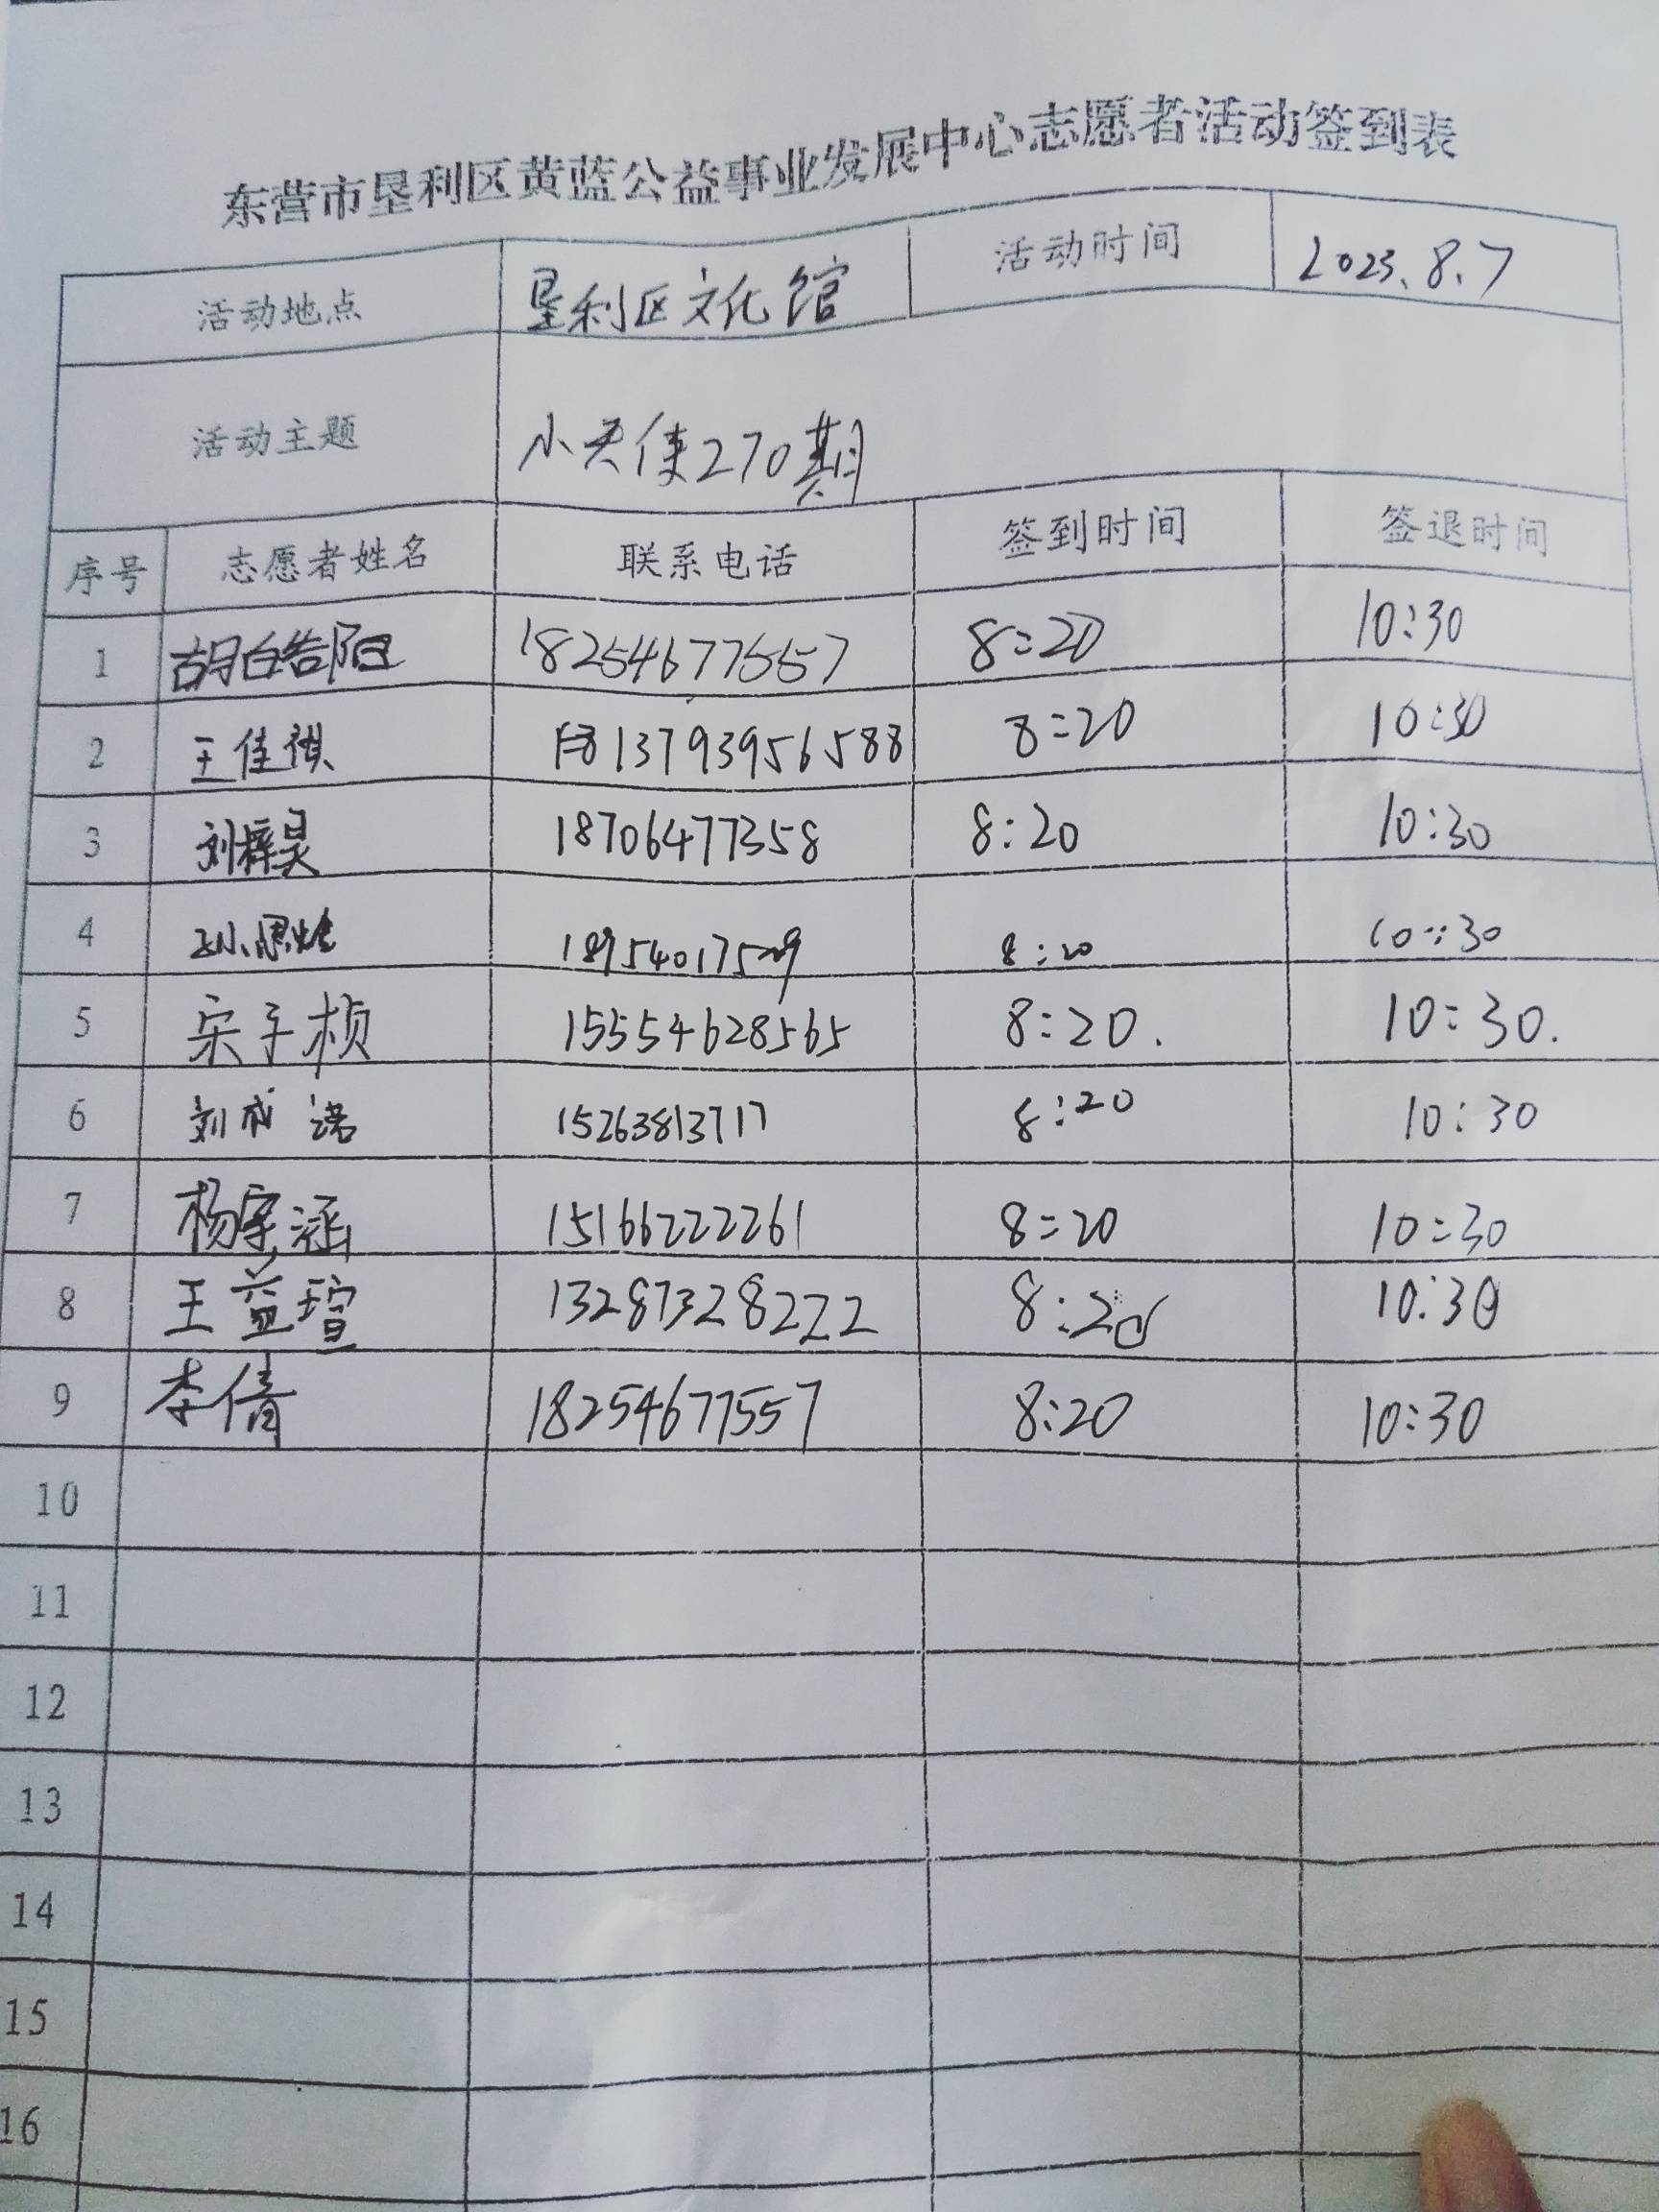 东营市垦利区黄蓝公益事业发展中心志愿者活动签到表
活动地点 垦利区文化馆 活动时间 2023.8.7
活动主题 小天使270期
序号 志愿者姓名 联系电话 签到时间 签退时间
1 胡皓阳 18254677557 8:20 10:30
2 王佳祺 13793956588 8:20 10:30
3 刘梓昊 18706477358 8:20 10:30
4 18954017529 8:20 10:30
5 宋子桢 15554628565 8:20. 10:30.
6 刘成诺 15263813717 8:20 10:30
7 杨宇涵 15166222261 8:20 10:30
8 王益瑄 13287328222 8:20 10:30
9 李倩 18254677557 8:20 10:30
10
11
12
13
14
15
16